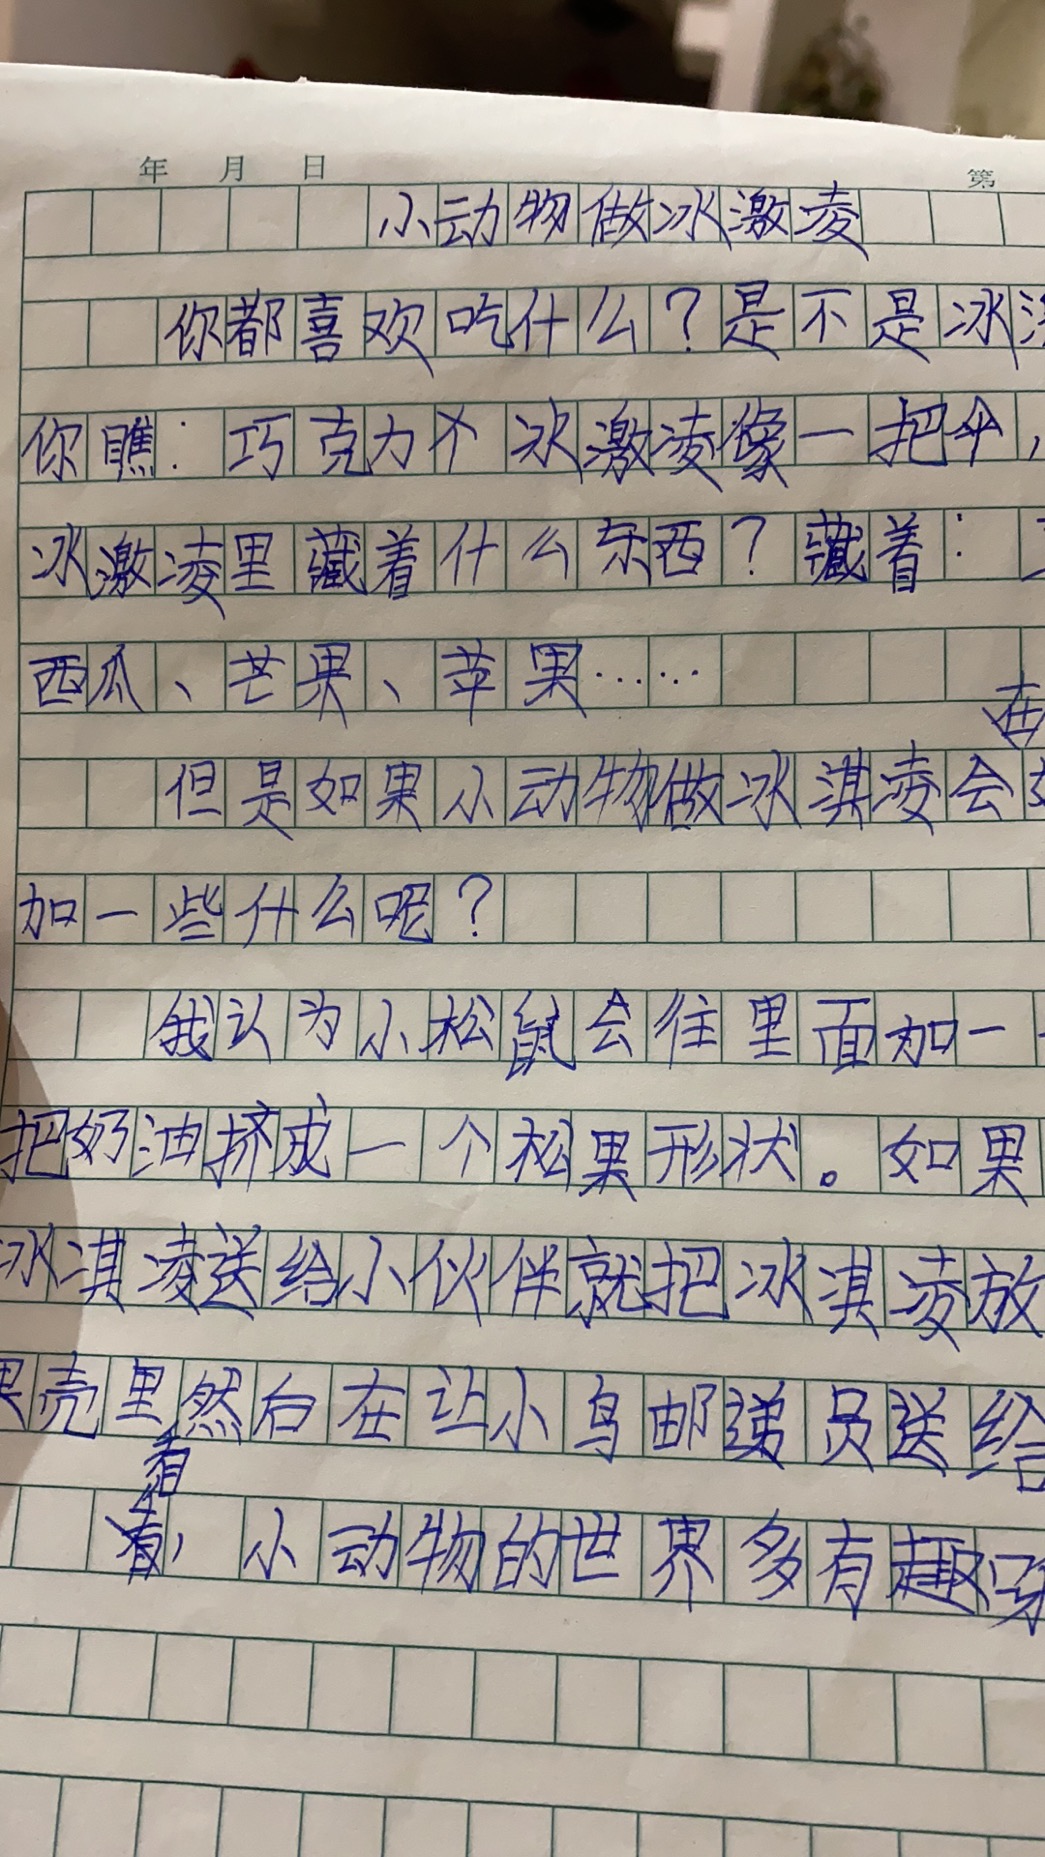 年 月 日 第
小动物做冰激凌
你都喜欢吃什么？是不是冰
你瞧：巧克力个冰激凌像一把伞，
冰激凌里藏着什么东西？藏着：
西瓜、芒果、苹果……
在
但是如果小动物做冰淇凌会
加一些什么呢？
我认为小松鼠会往里面加一
把奶油挤成一个松果形状。如果
冰淇凌送给小伙伴就把冰淇凌放
果壳里然后在让小鸟邮递员送给
看
看，小动物的世界多有趣呀